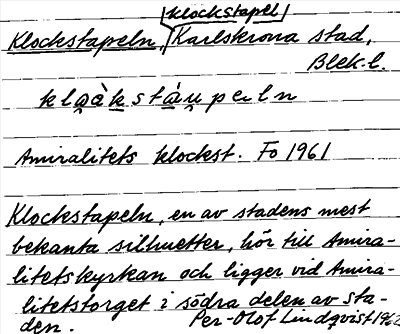 klockstapel
Klockstapeln, Karlskrona stad,
Blek. l.
Amiralitets klockst. Fo 1961
Klockstapeln, en av stadens mest
bekanta silhuetter, hör till Amira-
litetskyrkan och ligger vid Amira-
litetstorget i södra delen av sta-
den.
Per-Olof Lindqvist 1962